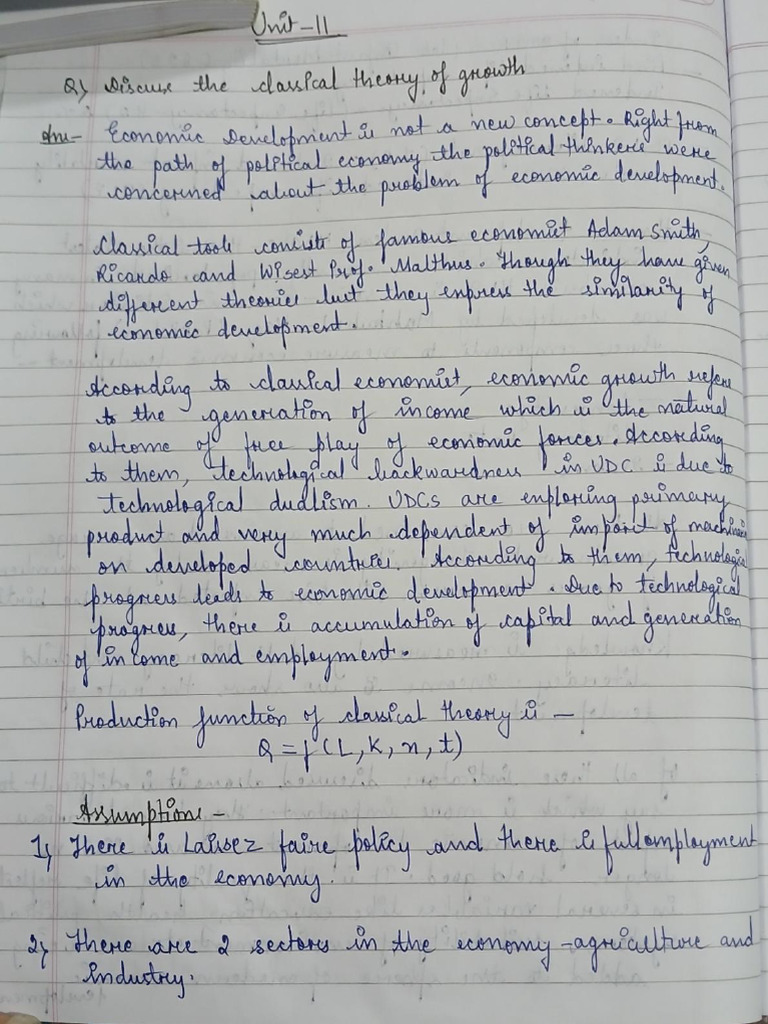 Unit-II
Q) Discuss the classical theory of growth
Ans- Economic Development is not a new concept. Right from
the path of political economy the political thinkers were
concerned about the problem of economic development.
Classical tools consists of famous economist Adam Smith,
Ricardo and Wisest Prof. Malthus. Though they have given
different theories but they express the similarity of
economic development.
According to classical economist, economic growth refers
to the generation of income which is the natural
outcome of free play of economic forces. According
to them, technological backwardness in UDC is due to
technological dualism. UDCs are exploring primary
product and very much dependent of import of machines
on developed countries. According to them, technological
progress leads to economic development. Due to technological
progress, there is accumulation of capital and generation
of income and employment.
Production function of classical theory is —
Q = f (L, K, n, t)
Assumptions -
1) There is Laissez faire policy and there is full employment
in the economy.
2) There are 2 sectors in the economy - agriculture and
industry.